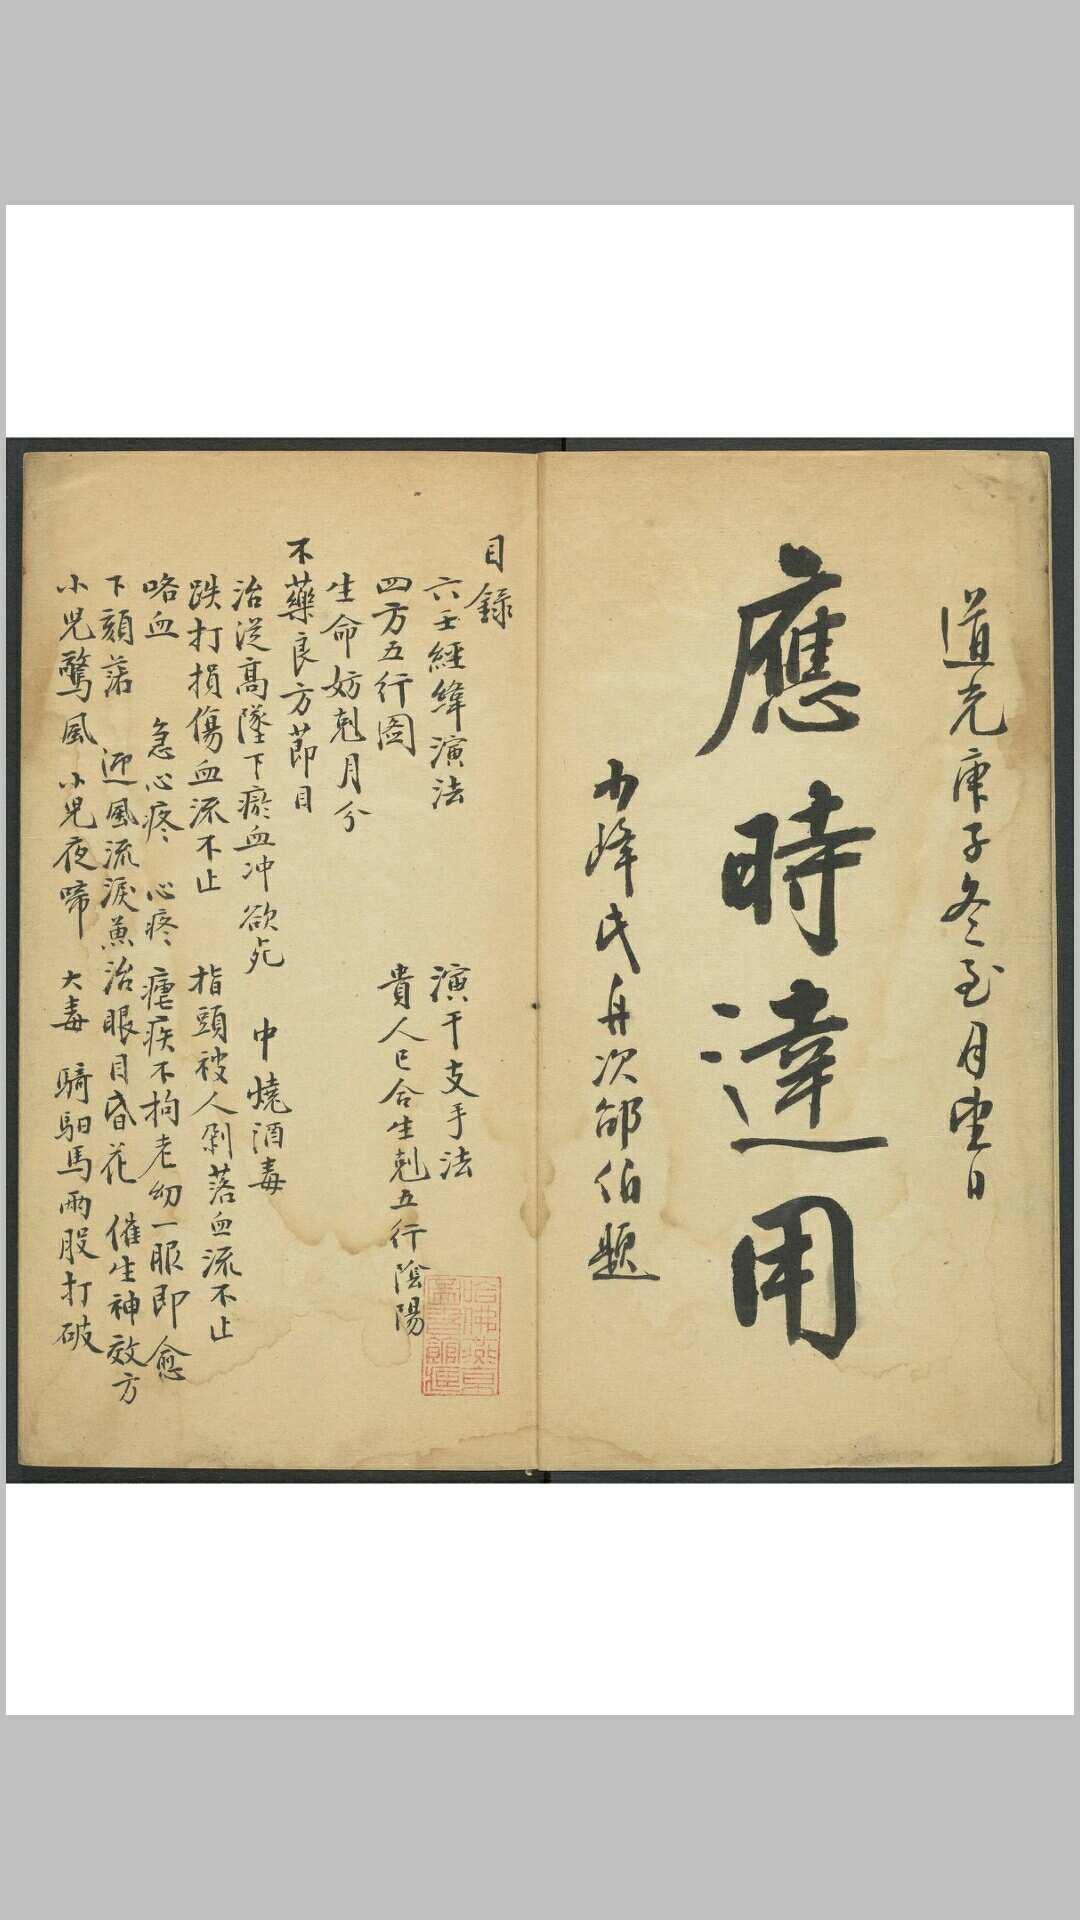 道光庚子冬至月望日
應時達用
小峰氏舟次邰伯題
目錄
六壬經緯演法　演干支手法
四方五行圖　貴人巳合生剋五行陰陽
生命妨剋月分
不藥良方節目
治從高墜下瘀血冲欲死　中燒酒毒
跌打損傷血流不止　指頭被人剁落血流不止
咯血　急心疼　心疼　瘧疾不拘老幼一服即愈
下頦落　迎風流淚兼治眼目昏花　催生神效方
小兒驚風　小兒夜啼　大毒　騎馹馬兩股打破
哈佛燕京
圖書館